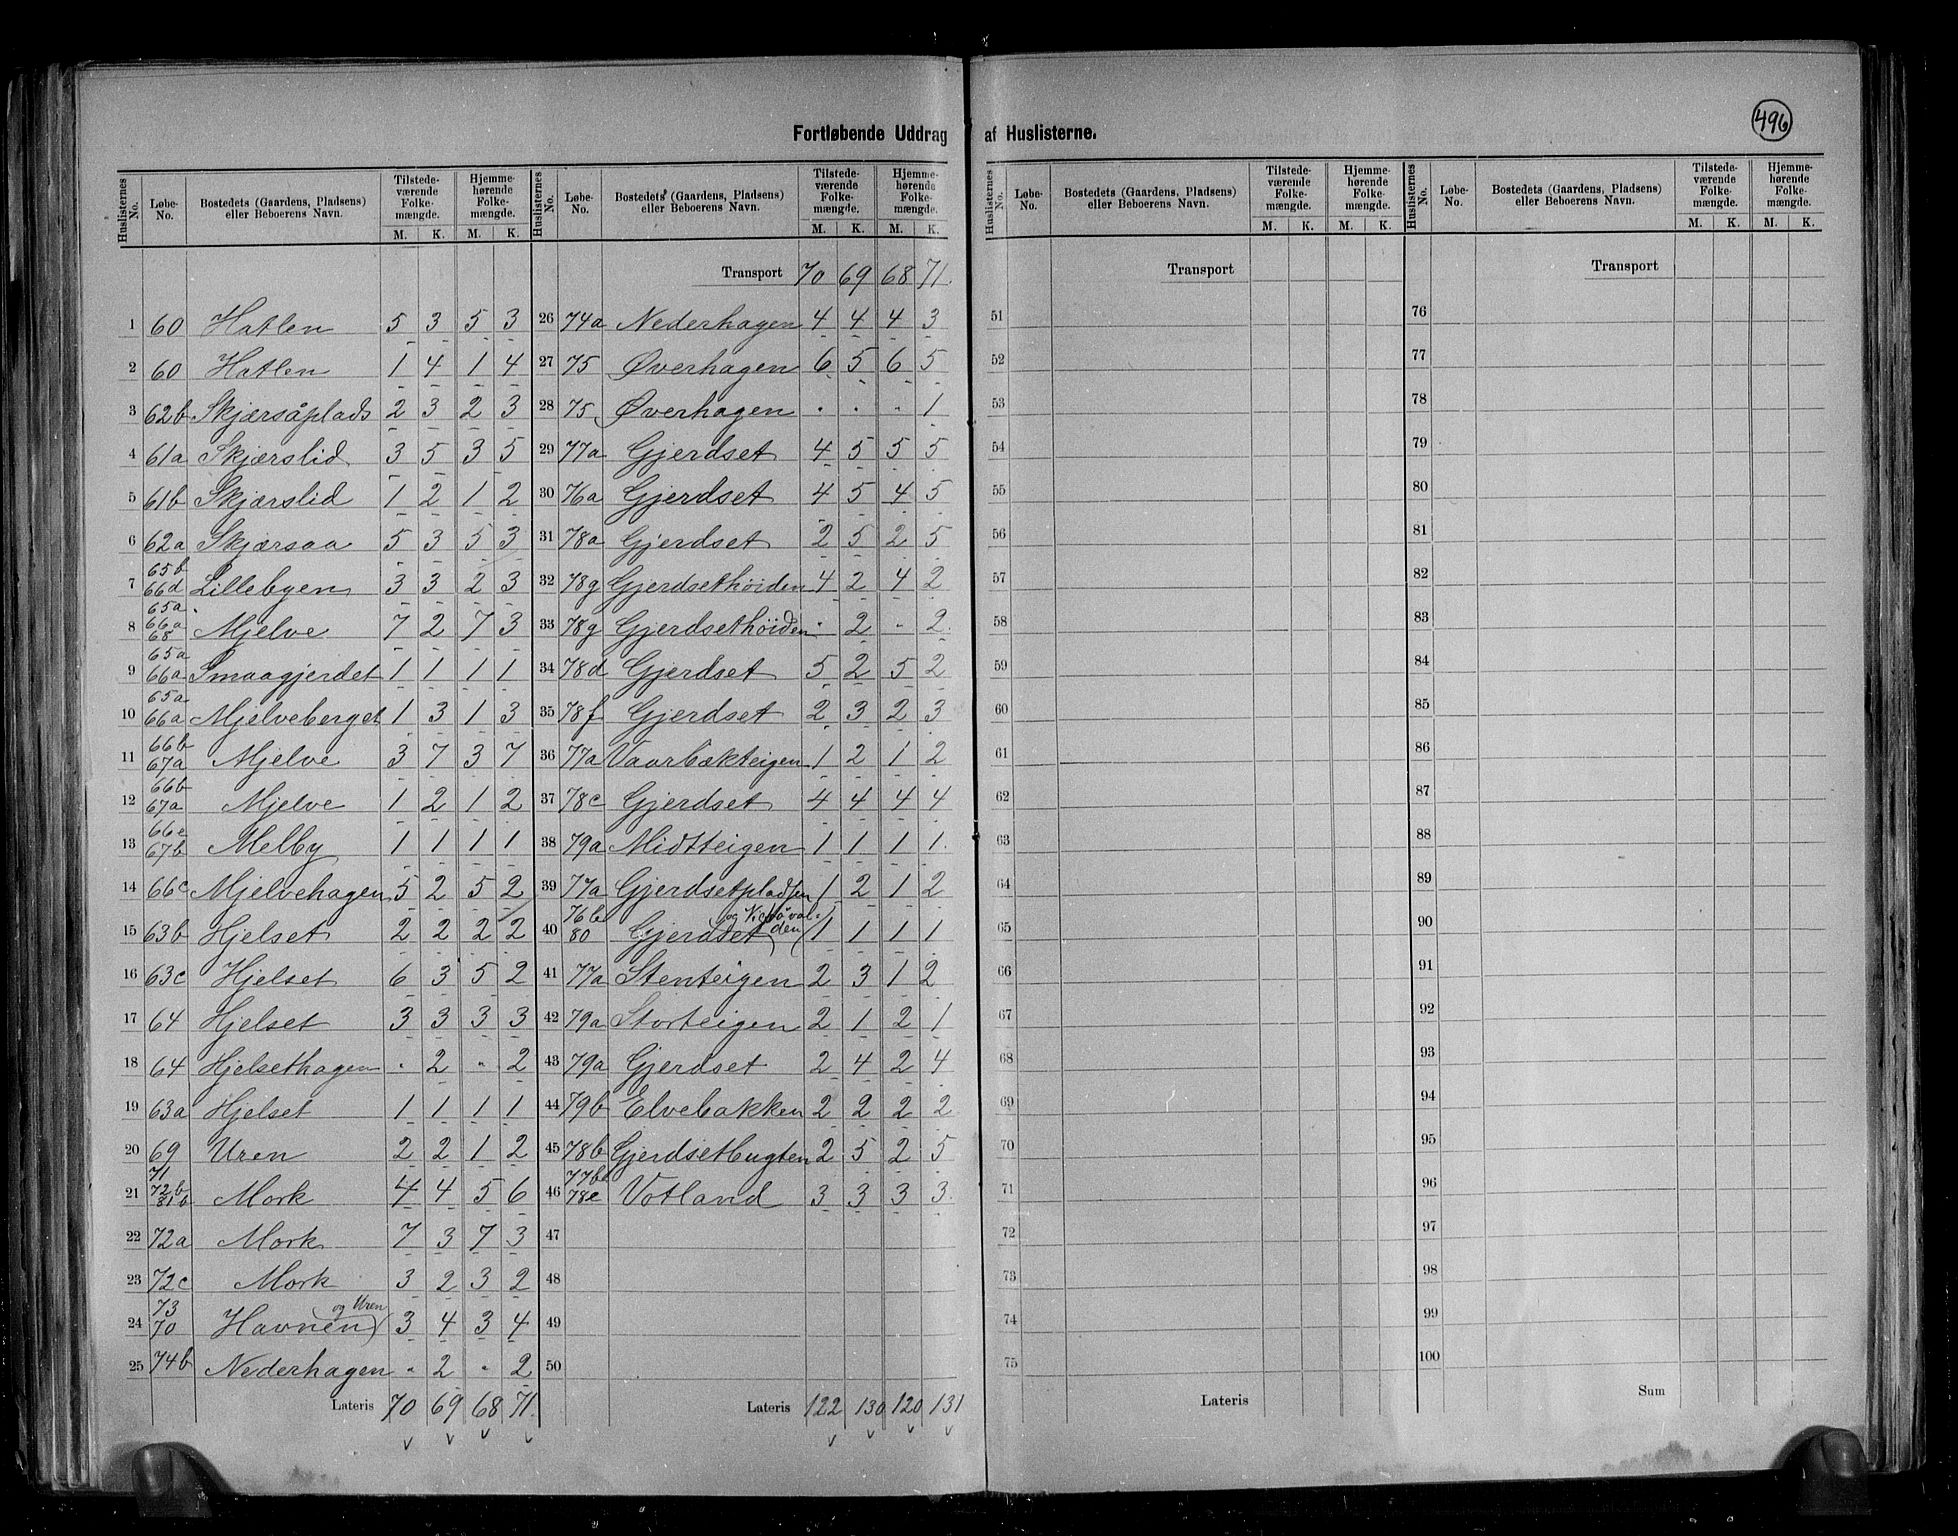 496
Fortløbende Uddrag af Huslisterne.
Huslisternes No. | Løbe-No. | Bostedets (Gaardens, Pladsens) eller Beboerens Navn. | Tilstedeværende Folkemængde. M. K. | Hjemmehørende Folkemængde. M. K.
1 60 Hatlen 5 3 5 3
2 60 Hatlen 1 4 1 4
3 62b Skjærsåplads 2 3 2 3
4 61a Skjærslid 3 5 3 5
5 61b Skjærslid 1 2 1 2
6 62a Skjærsaa 5 3 5 3
7 65b 66d Lillebyen 3 3 2 3
8 65a 66a 68 Mjelve 7 2 7 3
9 65a 66a Smaagjerdet 1 1 1 1
10 65a 66a Mjelveberget 1 3 1 3
11 66b 67a Mjelve 3 7 3 7
12 66b 67a Mjelve 1 2 1 2
13 66e 67b Melby 1 1 1 1
14 66c Mjelvehagen 5 2 5 2
15 63b Hjelset 2 2 2 2
16 63c Hjelset 6 3 5 2
17 64 Hjelset 3 3 3 3
18 64 Hjelsethagen " 2 " 2
19 63a Hjelset 1 1 1 1
20 69 Uren 2 2 1 2
21 71 72b 81b Mork 4 4 5 6
22 72a Mork 7 3 7 3
23 72c Mork 3 2 3 2
24 73 70 Havnen og Uren 3 4 3 4
25 74b Nederhagen " 2 " 2
Lateris 70 69 68 71.
Huslisternes No. | Løbe-No. | Bostedets (Gaardens, Pladsens) eller Beboerens Navn. | Tilstedeværende Folkemængde. M. K. | Hjemmehørende Folkemængde. M. K.
Transport 70 69 68 71.
26 74a Nederhagen 4 4 4 3
27 75 Øverhagen 6 5 6 5
28 75 Øverhagen " " " 1
29 77a Gjerdset 4 5 5 5
30 76a Gjerdset 4 5 4 5
31 78a Gjerdset 2 5 2 5
32 78g Gjerdsethöiden 4 2 4 2
33 78g Gjerdsethöiden " 2 " 2
34 78d Gjerdset 5 2 5 2
35 78f Gjerdset 2 3 2 3
36 77a Vaarbakteigen 1 2 1 2
37 78c Gjerdset 4 4 4 4
38 79a Midtteigen 1 1 1 1
39 77a Gjerdsetpladsen 1 2 1 2
40 76b 80 Gjerdset og 1 1 1 1
41 77a Stenteigen 2 3 1 2
42 79a Storteigen 2 1 2 1
43 79a Gjerdset 2 4 2 4
44 79b Elvebakken 2 2 2 2
45 78b Gjerdsetbugten 2 5 2 5
46 77b 78e Votland 3 3 3 3
47
48
49
50
Lateris 122 130 120 131
Huslisternes No. | Løbe-No. | Bostedets (Gaardens, Pladsens) eller Beboerens Navn. | Tilstedeværende Folkemængde. M. K. | Hjemmehørende Folkemængde. M. K.
Transport
51
52
53
54
55
56
57
58
59
60
61
62
63
64
65
66
67
68
69
70
71
72
73
74
75
Lateris
Huslisternes No. | Løbe-No. | Bostedets (Gaardens, Pladsens) eller Beboerens Navn. | Tilstedeværende Folkemængde. M. K. | Hjemmehørende Folkemængde. M. K.
Transport
76
77
78
79
80
81
82
83
84
85
86
87
88
89
90
91
92
93
94
95
96
97
98
99
100
Sum